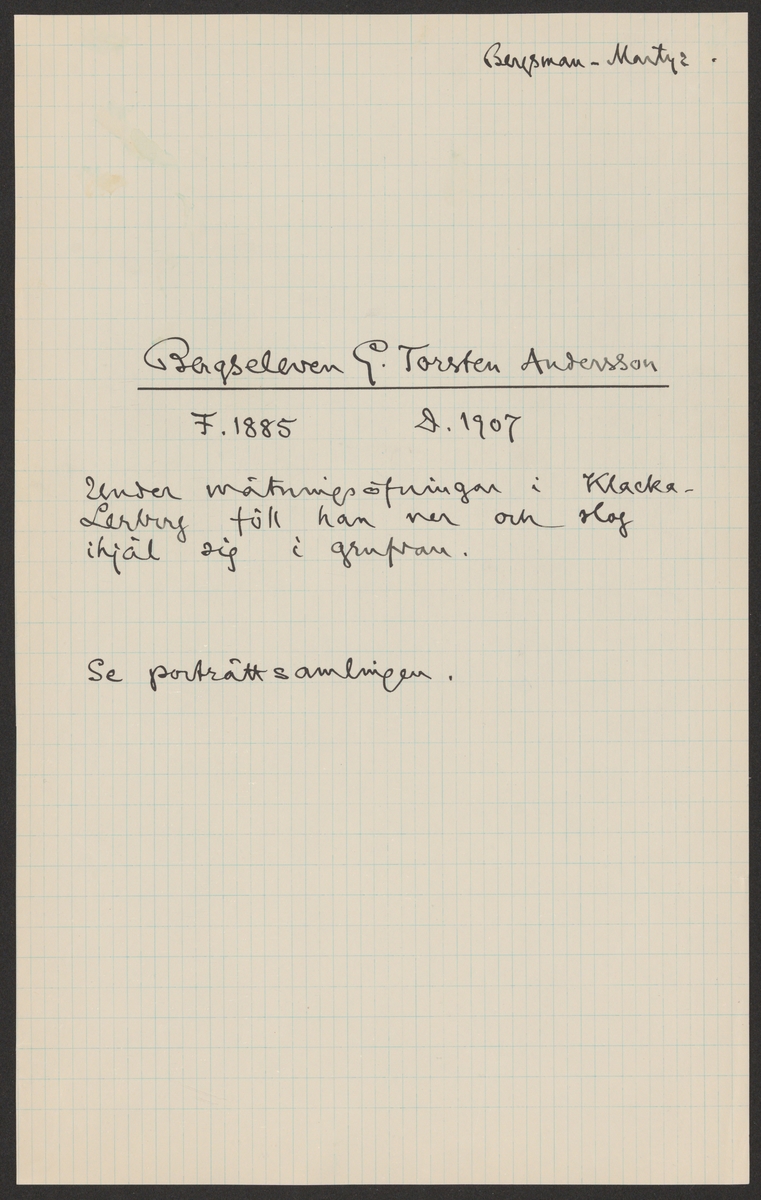 Bergsman - Martyr.
Bergseleven G. Torsten Andersson
F. 1885 D. 1907
Under mätningsöfningar i Klacka-
Lerberg föll han ner och slog
ihjäl sig i grufvan.
Se porträttsamlingen.